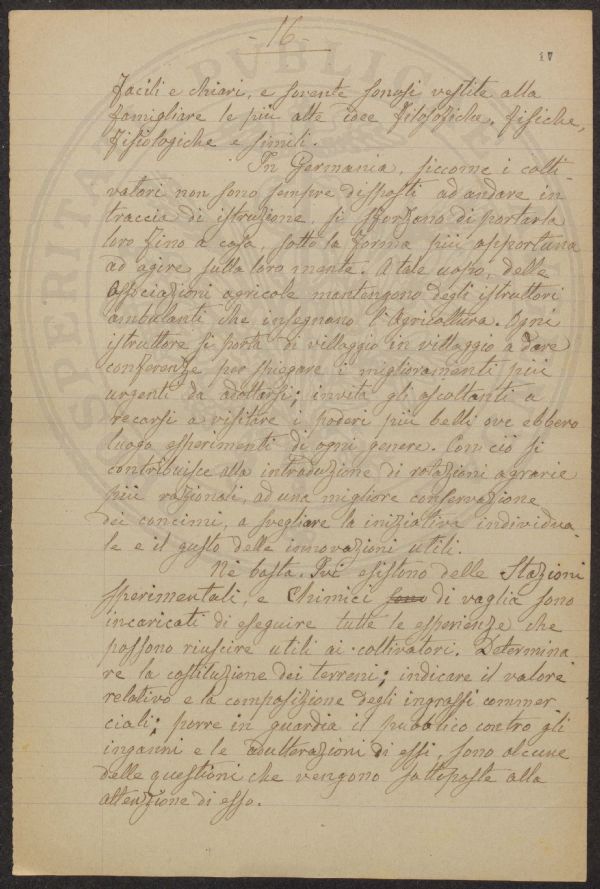 - 16 -
17
facili e chiari, e sovente sonosi vestite alla
famigliare le più alte idee filosofiche, fisiche,
fisiologiche e simili.
In Germania, siccome i colti-
vatori non sono sempre disposti ad andare in
traccia di istruzione, si sforzano di portarla
loro fino a casa, sotto la forma più opportuna
ad agire sulla loro mente. A tale uopo, delle
Associazioni agricole mantengono degli istruttori
ambulanti che insegnano l'Agricoltura. Ogni
istruttore si porta di villaggio in villaggio a dare
conferenze per spiegare i miglioramenti più
urgenti da adottarsi; invita gli ascoltanti a
recarsi a visitare i poderi più belli ove ebbero
luogo esperimenti di ogni genere. Con ciò si
contribuisce alla introduzione di rotazioni agrarie
più razionali, ad una migliore conservazione
dei concimi, a svegliare la iniziativa individua
le e il gusto delle innovazioni utili.
Nè basta. Ivi esistono delle Stazioni
sperimentali, e Chimici sono di vaglia sono
incaricati di eseguire tutte le esperienze che
possono riuscire utili ai coltivatori. Determina
re la costituzione dei terreni; indicare il valore
relativo e la composizione degli ingrassi commer
ciali; porre in guardia il pubblico contro gli
inganni e le adulterazioni di essi, sono alcune
delle questioni che vengono sottoposte alla
attenzione di esso.